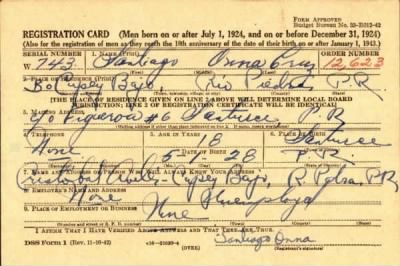 FORM APPROVED
Budget Bureau No. 33-R012-42
REGISTRATION CARD (Men born on or after July 1, 1924, and on or before December 31, 1924)
(Also for the registration of men as they reach the 18th anniversary of the date of their birth on or after January 1, 1943.)
SERIAL NUMBER 1. NAME (Print) ORDER NUMBER
W 743 Santiago Onna Cruz 12,623
2. PLACE OF RESIDENCE (Print)
Bo Cupey Bajo Rio Piedras, P.R.
[THE PLACE OF RESIDENCE GIVEN ON LINE 2 ABOVE WILL DETERMINE LOCAL BOARD
JURISDICTION; LINE 2 OF REGISTRATION CERTIFICATE WILL BE IDENTICAL]
3. MAILING ADDRESS
Figueroa #6 Santurce P.R.
4. TELEPHONE 5. AGE IN YEARS 6. PLACE OF BIRTH
None 18 Santurce
DATE OF BIRTH
5-1-28 P.R.
7. NAME AND ADDRESS OF PERSON WHO WILL ALWAYS KNOW YOUR ADDRESS
Cupey Bajo, R. Pdras, P.R.
8. EMPLOYER'S NAME AND ADDRESS
None Unemployed
9. PLACE OF EMPLOYMENT OR BUSINESS
None
I AFFIRM THAT I HAVE VERIFIED ABOVE ANSWERS AND THAT THEY ARE TRUE.
DSS Form 1 (Rev. 11-16-42) (OVER) Santiago Onna